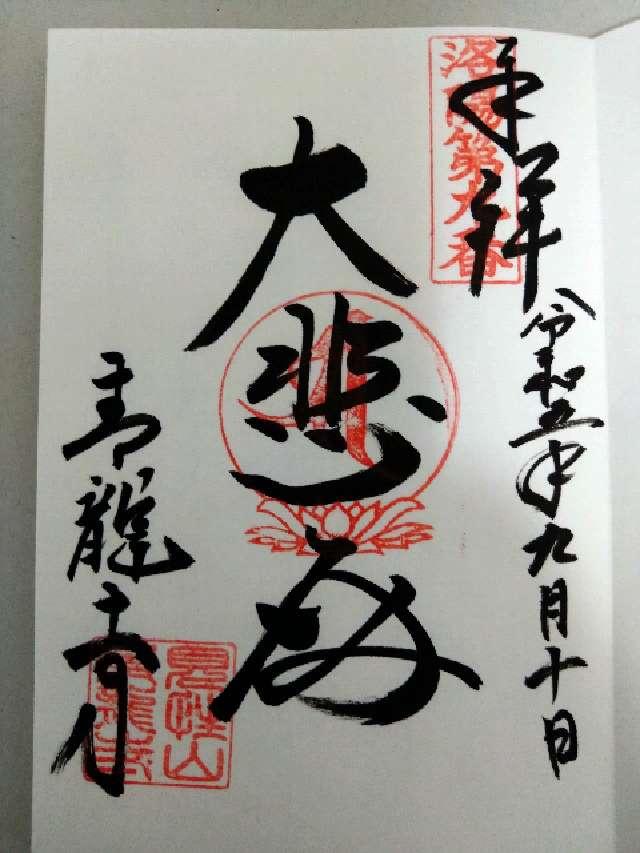 奉拝
洛陽第九番
令和五年九月十日
大悲殿
青龍寺
見性山
青龍寺